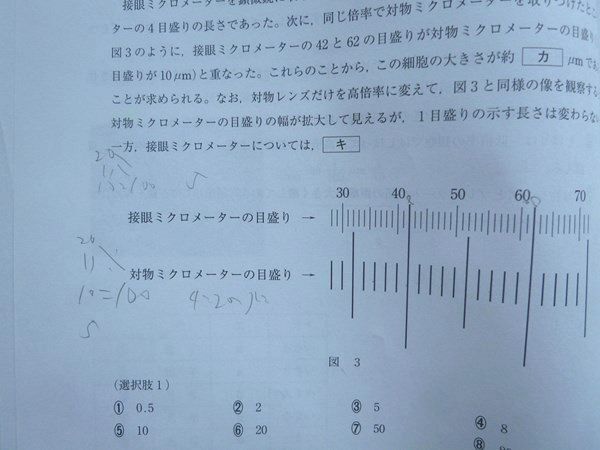 ターの4目盛りの長さであった。次に，同じ倍率で対物ミクロメーターを取りつけたとこ
図3のように，接眼ミクロメーターの42と62の目盛りが対物ミクロメーターの目盛り
目盛りが10μm）と重なった。これらのことから，この細胞の大きさが約 カ μmであ
ことが求められる。なお，対物レンズだけを高倍率に変えて，図3と同様の像を観察する
対物ミクロメーターの目盛りの幅が拡大して見えるが，1目盛りの示す長さは変わらな
一方，接眼ミクロメーターについては，キ
30 40 50 60 70
接眼ミクロメーターの目盛り →
対物ミクロメーターの目盛り →
図 3
(選択肢1)
① 0.5 ② 2 ③ 5 ④ 8
⑤ 10 ⑥ 20 ⑦ 50 ⑧